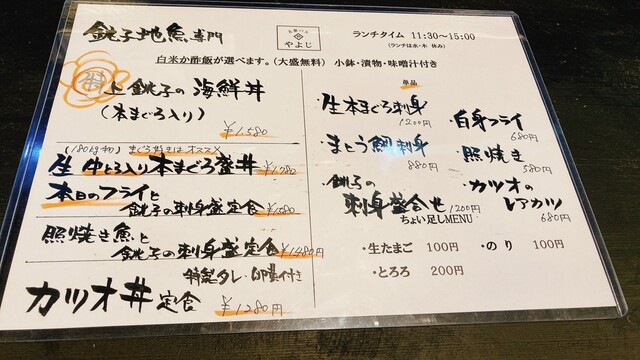 銚子地魚専門
やよじ
ランチタイム 11:30～15:00
(ランチは水・木 休み)
白米か酢飯が選べます。(大盛無料) 小鉢・漬物・味噌汁付き
上 銚子の海鮮丼
(本まぐろ入り)
￥1,580
まぐろ好きはオススメ
生 中とろ入り本まぐろ盛丼
本日のフライと
銚子の刺身盛定食
照焼き魚と
銚子の刺身盛定食 ￥1,480円
特製タレ・卵黄付き
カツオ丼定食 ￥1,280円
単品
・生本まぐろ刺身
1200円
・まとう鯛刺身
880円
・銚子の
刺身盛合せ 1200円
・自身フライ
680円
・照焼き
580円
・カツオの
レアカツ
680円
ちょい足しMENU
・生たまご 100円
・のり 100円
・とろろ 200円